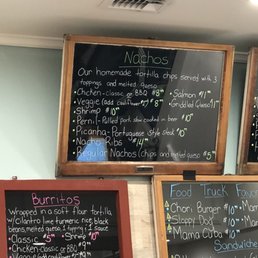 Nachos
Our homemade tortilla chips served with 3
toppings and melted queso
• Chicken-classic or BBQ $8
• Salmon $11
• Veggie (add cauliflower $2) $8
• Griddled Queso $11
• Shrimp $10
• Pernil-Pulled pork slow cooked in beer $10
• Picanha-Portuguese Style Steak $10
• Nacho Ribs $14
• Regular Nachos (chips and melted queso) $5
Burritos
Wrapped in a soft flour tortilla
w/ cilantro lime turmeric rice, black
beans, melted queso, 1 topping + 1 sauce
Classic $5 • Shrimp $10
• Chicken-classic or BBQ $9
Food Truck
• Chori Burger $10
• Sloppy Dog
• Mama Cuba $10
Sandwiche